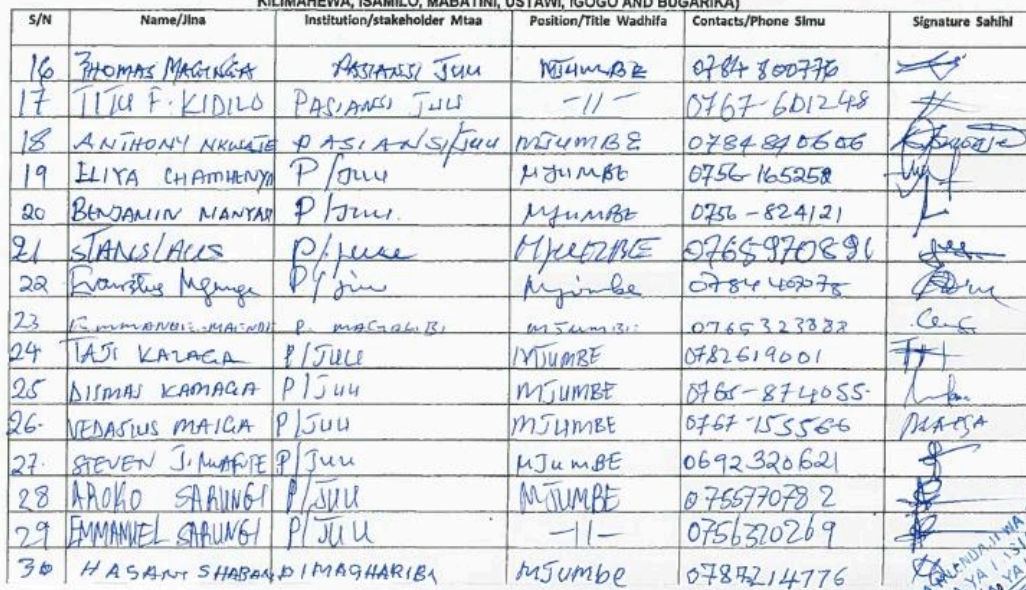 KILIMAHEWA, ISAMILO, MABATINI, USTAWI, IGOGO AND BUGARIKA)
S/N Name/Jina Institution/stakeholder Mtaa Position/Title Wadhifa Contacts/Phone Simu Signature Sahihi
16 THOMAS MAGINGA PASIANSI JUU MJUMBE 0784 800776
17 TITU F. KIDILO PASIANSI JUU -11- 0767-601248
18 ANTHONY NKWATE PASIANSI/JUU MJUMBE 0784 840606
19 ELIYA CHAMHENYA P/JUU MJUMBE 0756-165258
20 BENJAMIN MANYAR P/JUU. MJUMBE 0756-824121
21 STANSLAUS P/JUU MJUMBE 0765970891
22 P/juu Mjumbe
23 P. MAGALIBI MJUMBE 0765323888
24 TAJI KAZAGA P/JUU MJUMBE 0782619001
25 DISMAS KAMAGA P/JUU MJUMBE 0765-874055-
26. VEDASTUS MAIGA P/JUU MJUMBE 0767-155566
27. STEVEN J. P/JUU MJUMBE 0692320621
28 AROKO SARUNGI P/JUU MJUMBE 0755770782
29 EMMANUEL SARUNGI P/JUU -11- 0756320269
30 HASANI SHABAN P/MAGHARIBI MJUMBE 0787214776